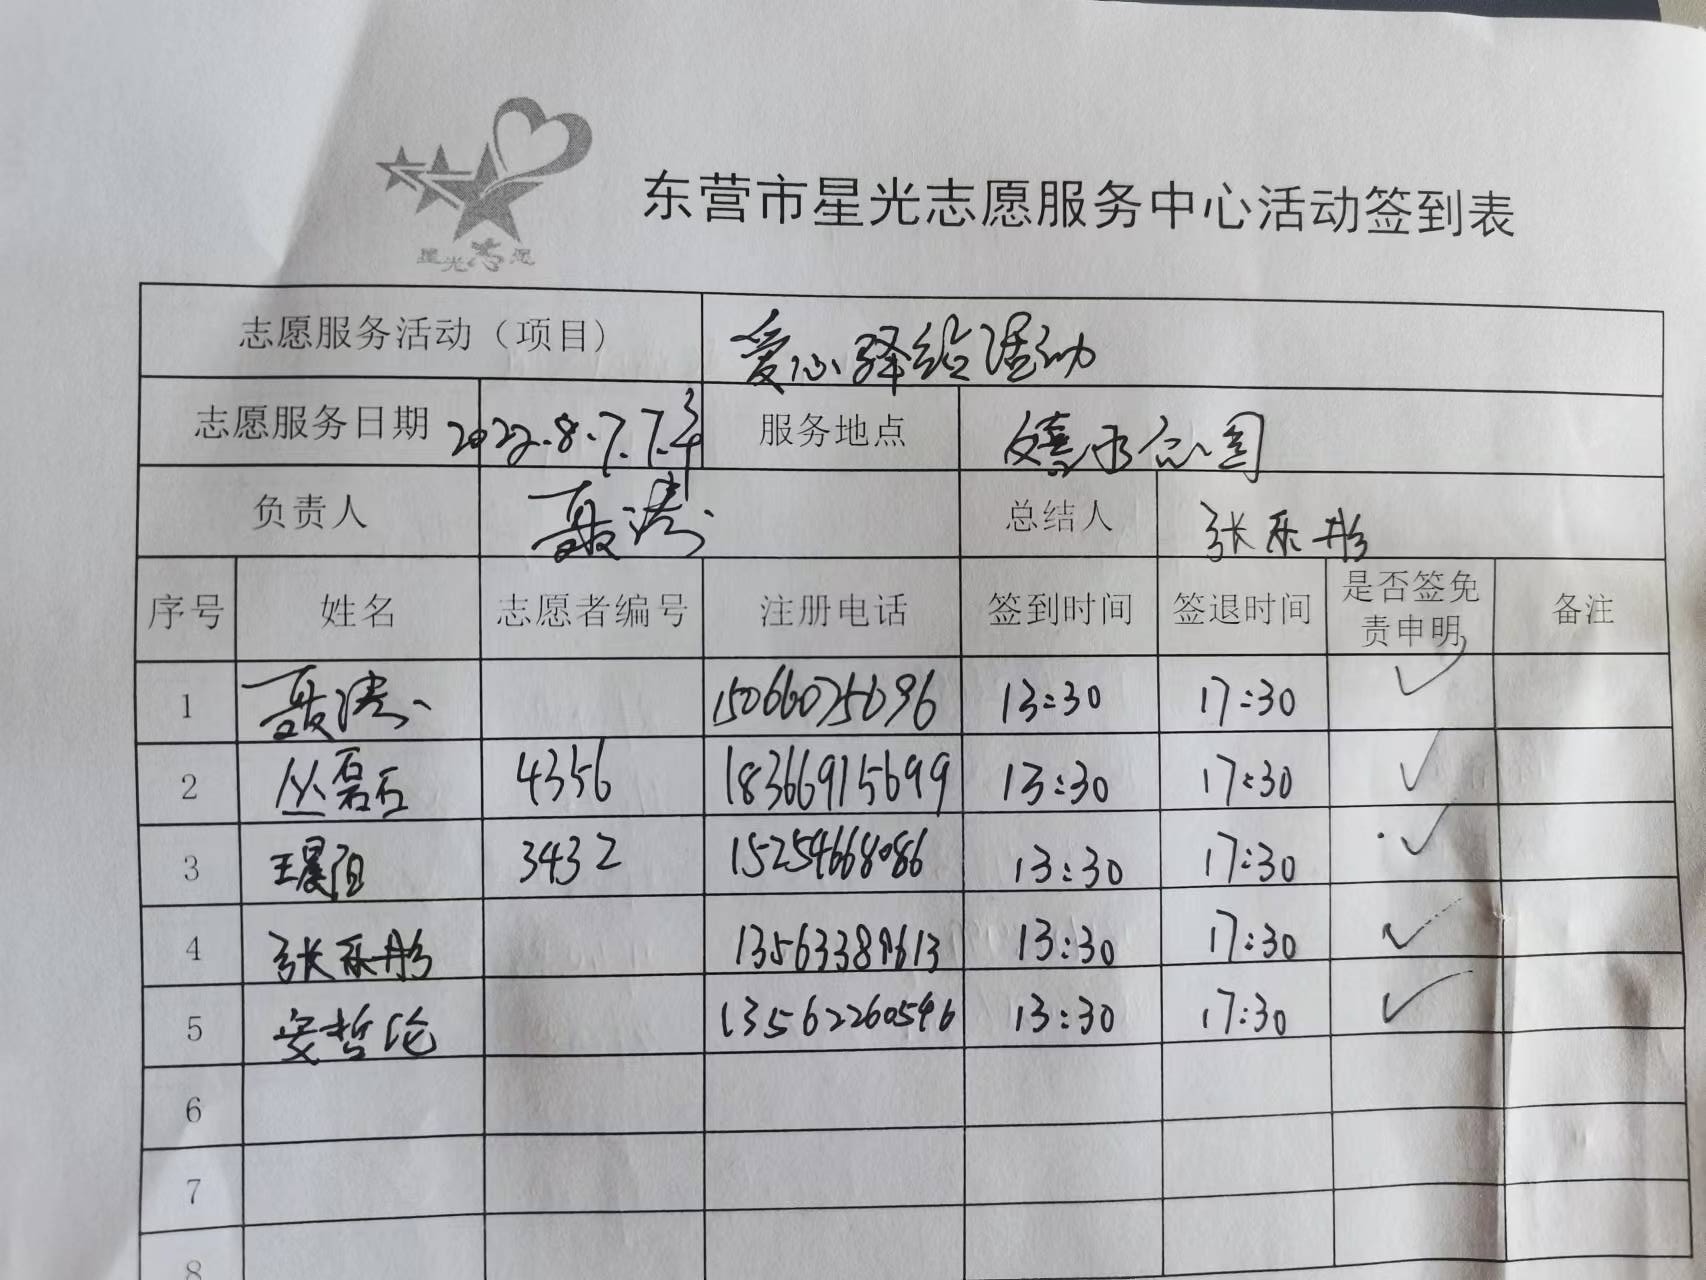 星光志愿
东营市星光志愿服务中心活动签到表
志愿服务活动（项目） 爱心驿给活动
志愿服务日期 2022.8.7.7. 服务地点 嬉水公园
负责人 聂涛 总结人 张乐彤
序号 姓名 志愿者编号 注册电话 签到时间 签退时间 是否签免责申明 备注
1 聂涛 15066075696 13:30 17:30 ✓
2 丛磊石 4356 18366915699 13:30 17:30 ✓
3 王晨阳 3432 15254668086 13:30 17:30 ✓
4 张乐彤 13563389613 13:30 17:30 ✓
5 安哲伦 13562260596 13:30 17:30 ✓
6
7
8